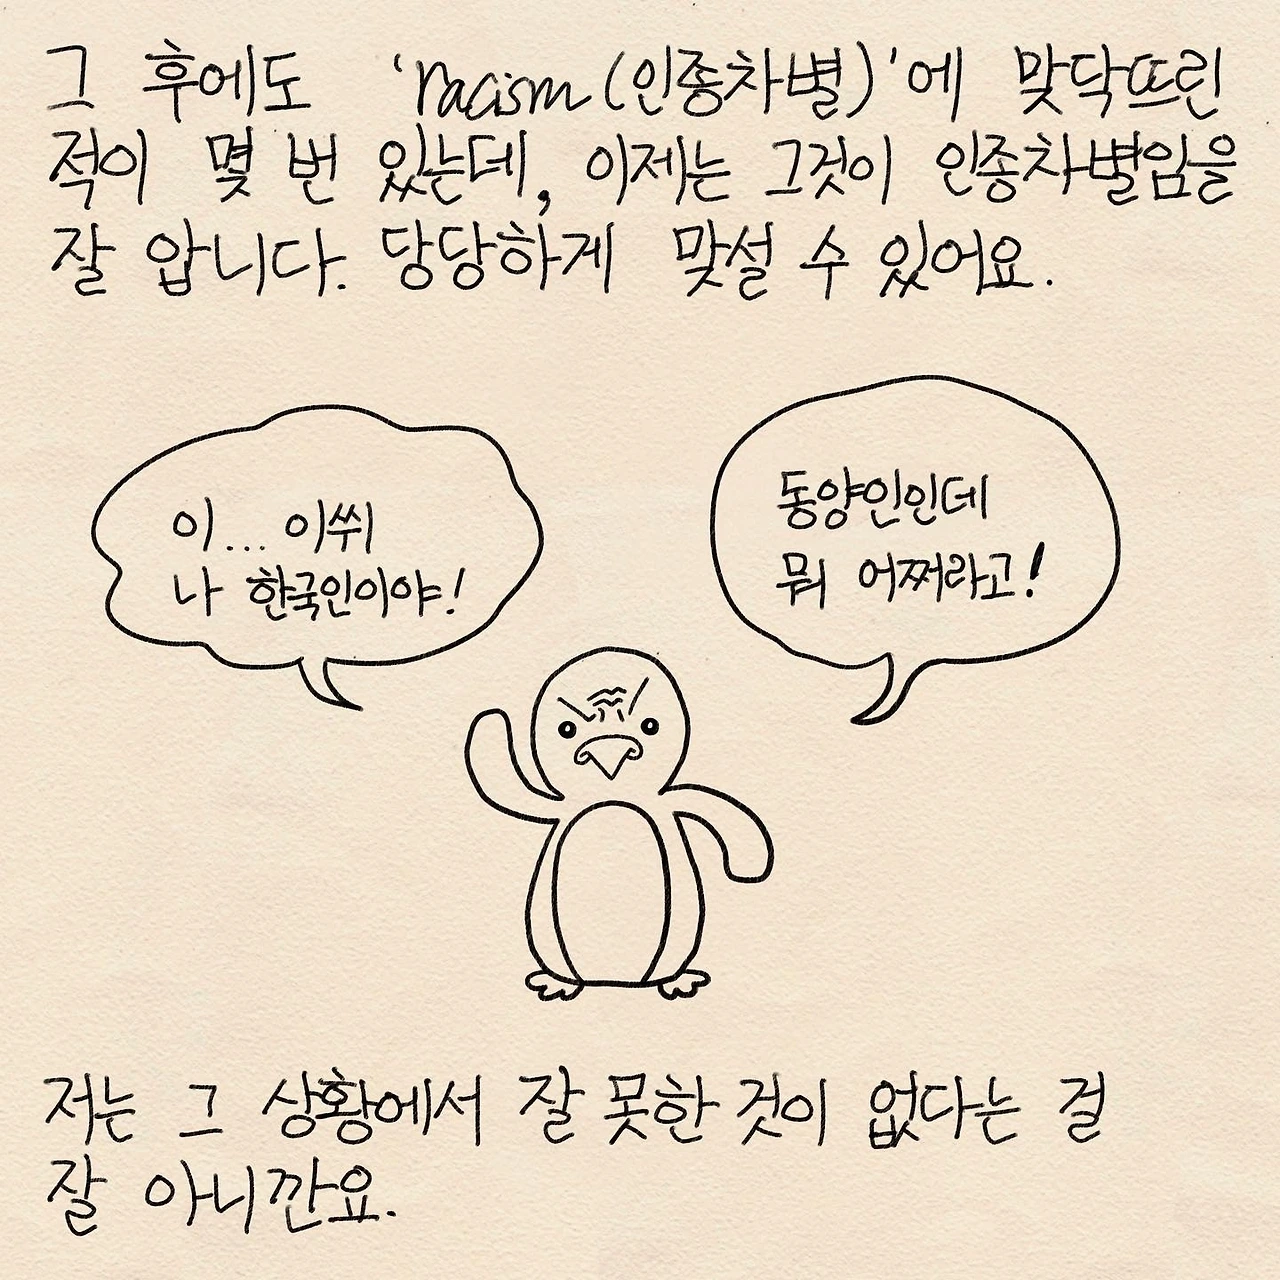 그 후에도 'racism(인종차별)'에 맞닥뜨린
적이 몇 번 있는데, 이제는 그것이 인종차별임을
잘 압니다. 당당하게 맞설 수 있어요.
이... 이쒸
나 한국인이야!
동양인인데
뭐 어쩌라고!
저는 그 상황에서 잘 못한 것이 없다는 걸
잘 아니깐요.